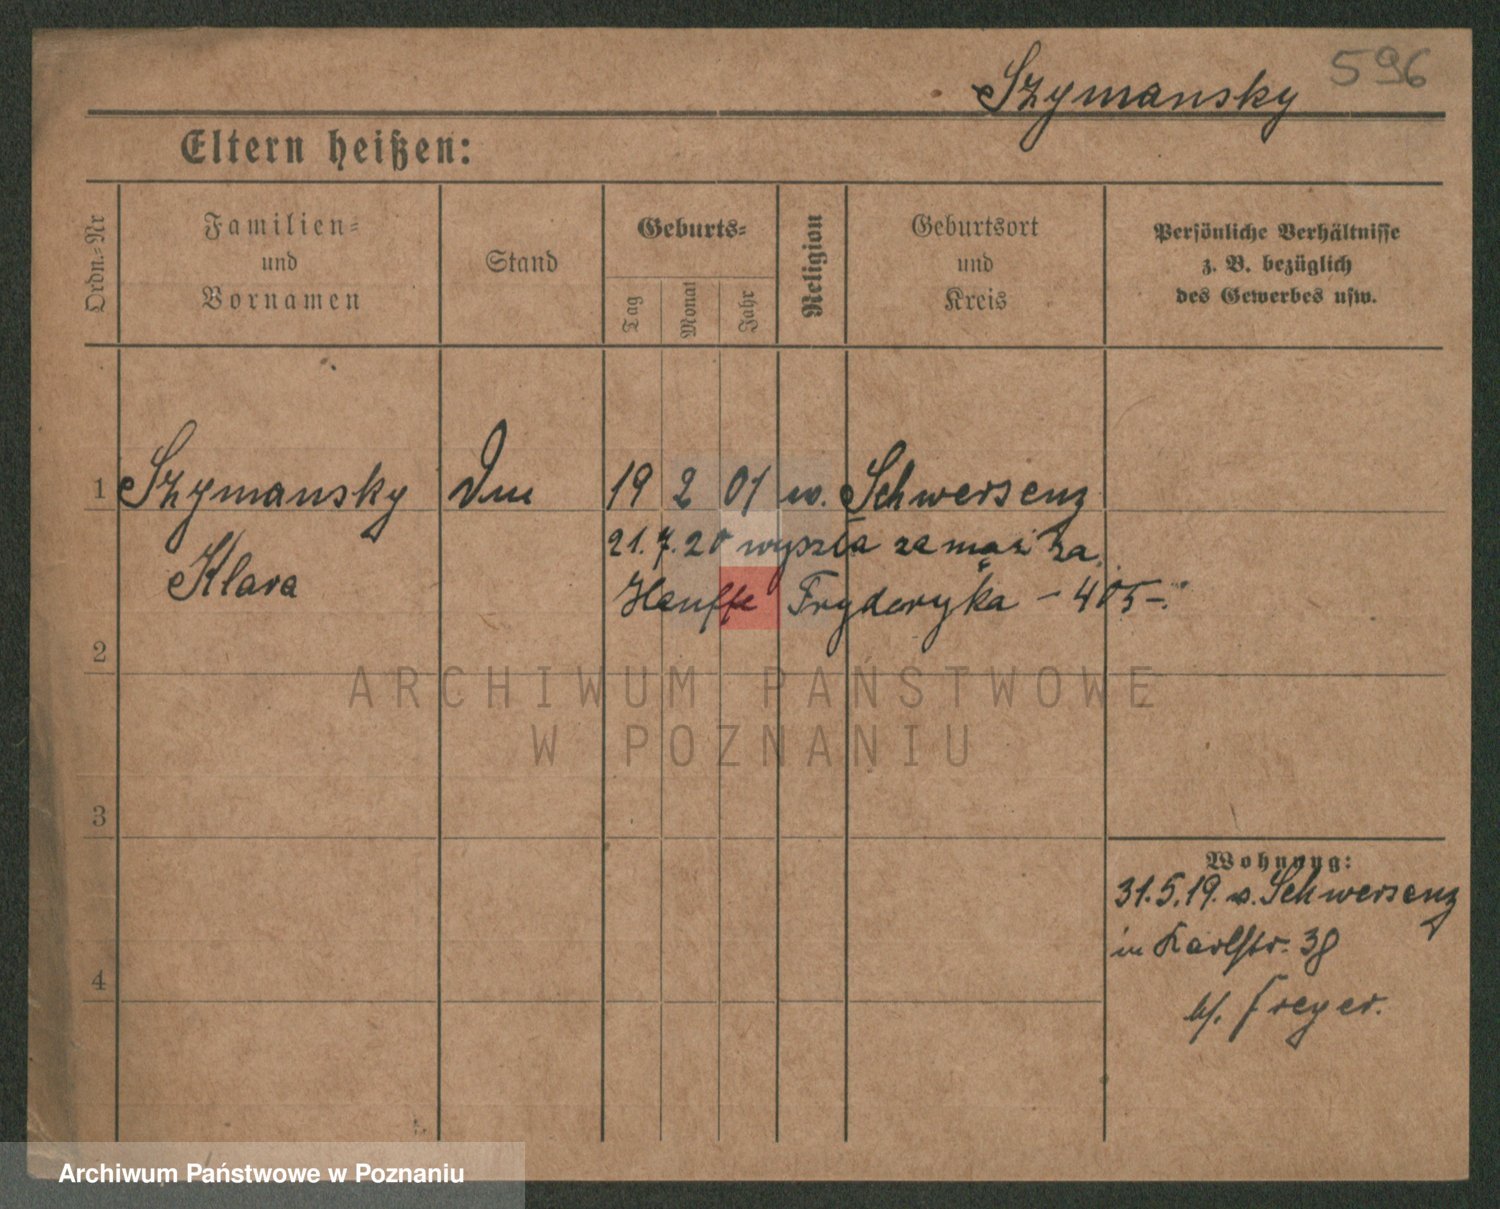 Szymansky 596
Eltern heißen:
Ordn.-Nr
Familien-
und
Vornamen
Stand
Geburts-
Tag
Monat
Jahr
Religion
Geburtsort
und
Kreis
Persönliche Verhältnisse
z. B. bezüglich
des Gewerbes usw.
1 Szymansky 19 2 01 Schwersenz
21.7.20 wyszła zamąż za
Klara
Hauffe Fryderyka - 405 -
2
ARCHIWUM PAŃSTWOWE
W POZNANIU
3
Wohnung:
31.5.19. v. Schwersenz
in Karlstr. 38
4
b/. Freyer.
Archiwum Państwowe w Poznaniu